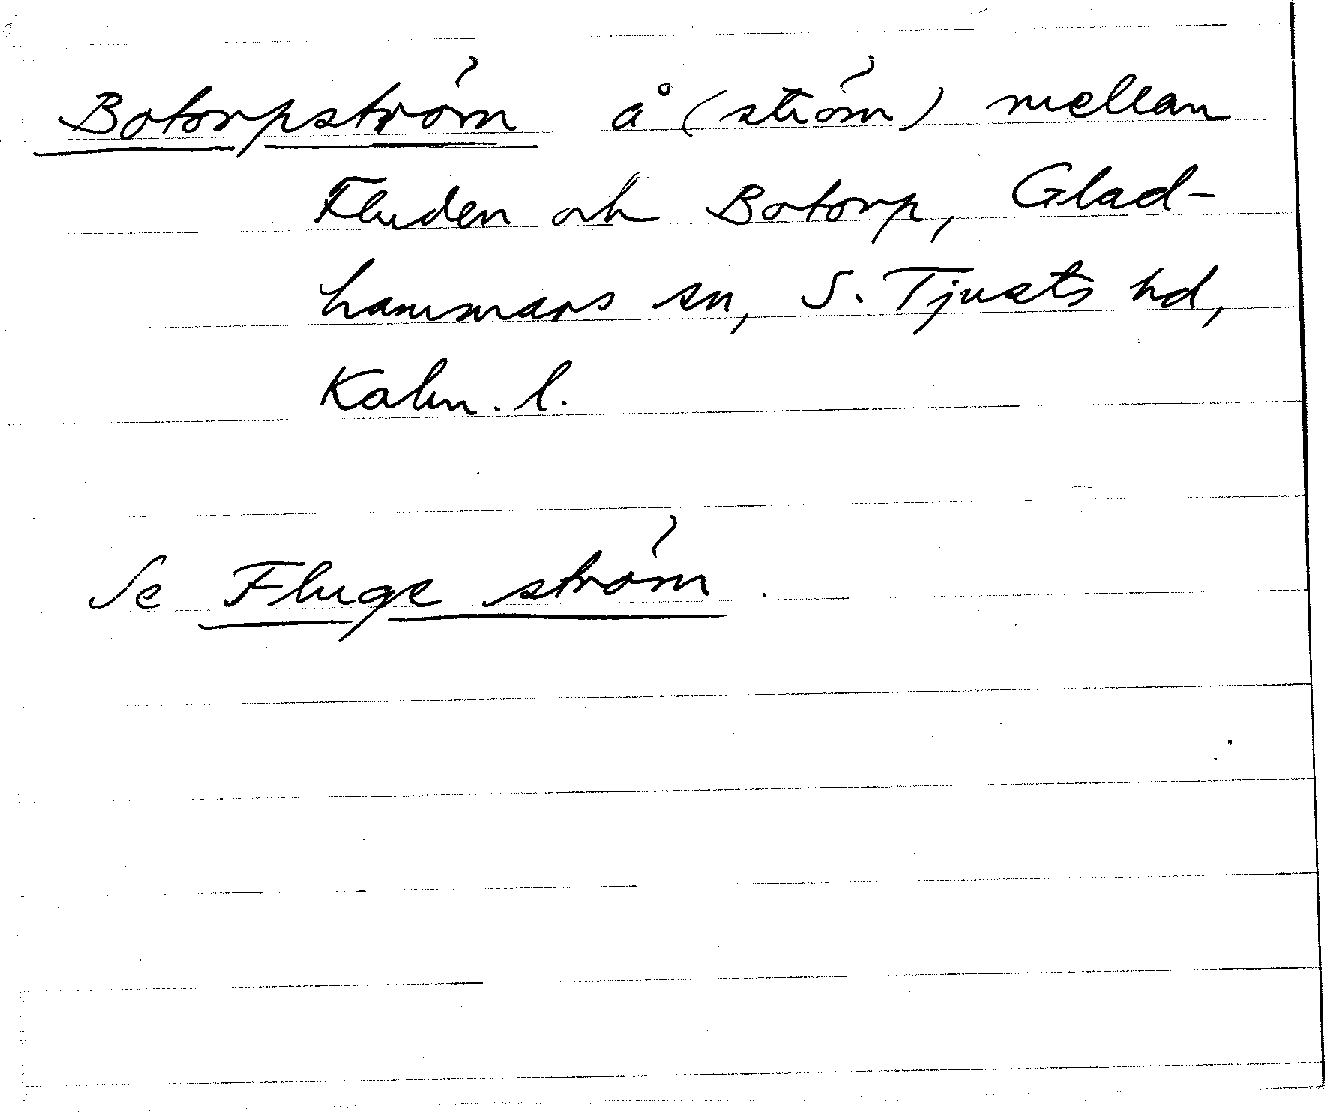 Botorpström å (ström) mellan
Fluden och Botorp, Glad-
hammars sn, S. Tjusts hd,
Kalm. l.
Se Fluge ström.